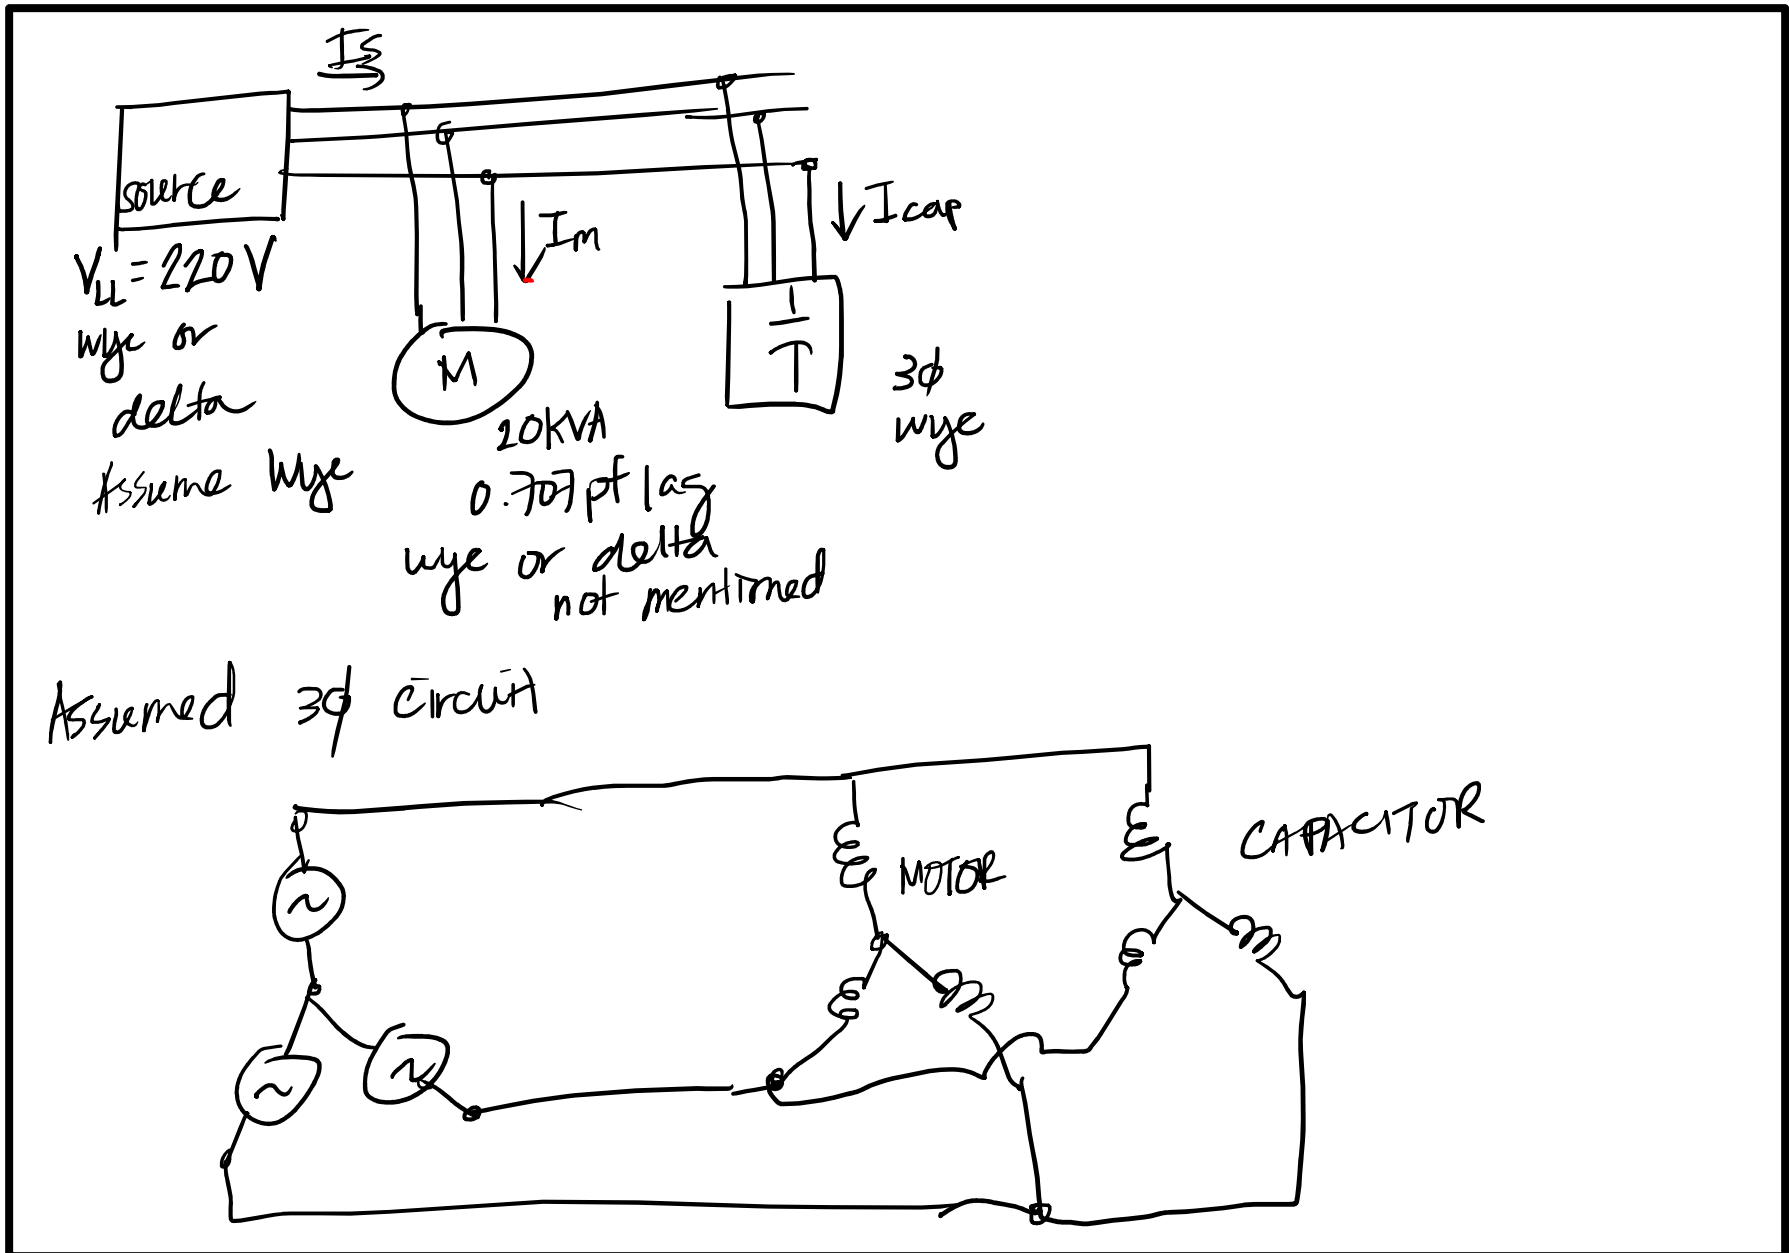 Is
source
Im
Icap
V_LL = 220 V
wye or
delta
Assume Wye
M
20KVA
0.707 pf lag
wye or delta
not mentioned
3φ
wye
Assumed 3φ circuit
MOTOR
CAPACITOR